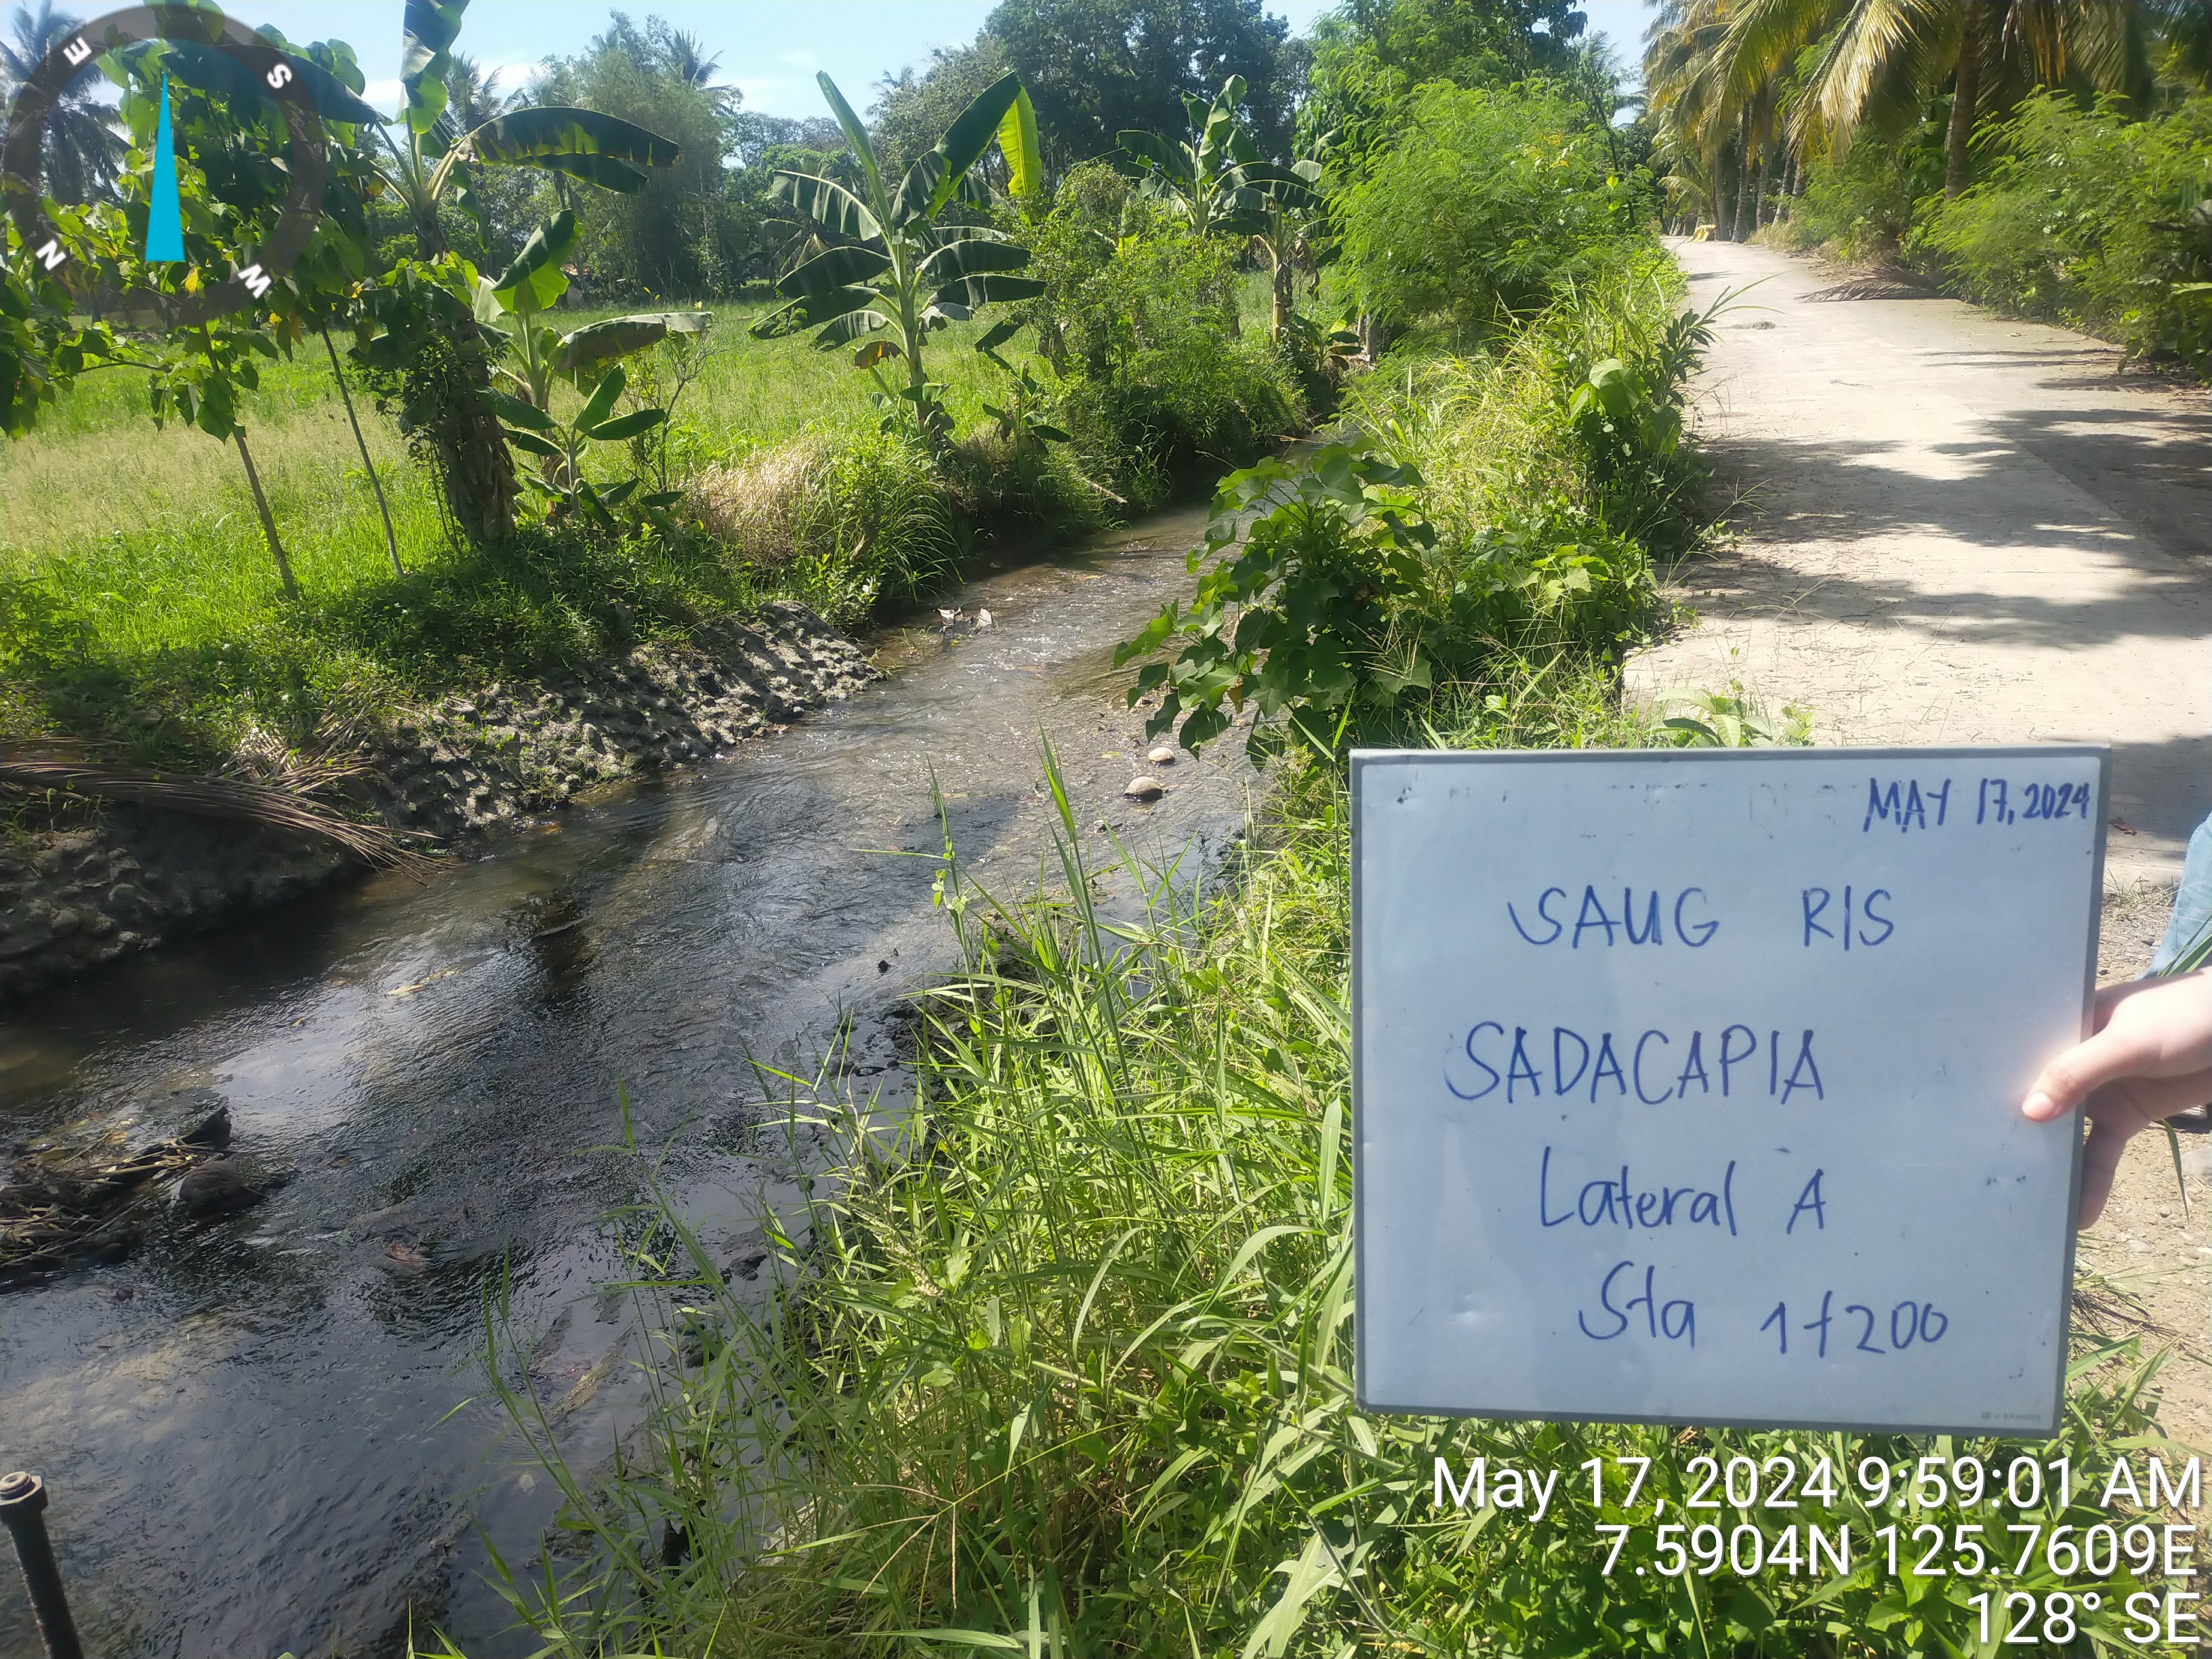 E
S
N
W
MAY 17, 2024
SAUG RIS
SADACAPIA
Lateral A
Sta 1+200
May 17, 2024 9:59:01 AM
7.5904N 125.7609E
128° SE